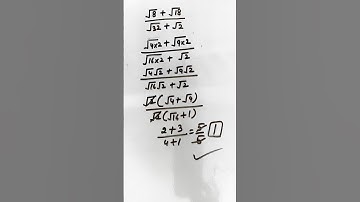 √8 + √18
√32 + √2
√4×2 + √9×2
√16×2 + √2
√4√2 + √9√2
√16√2 + √2
√2(√4+√9)
√2(√16+1)
2+3 = 5 1
4+1 5